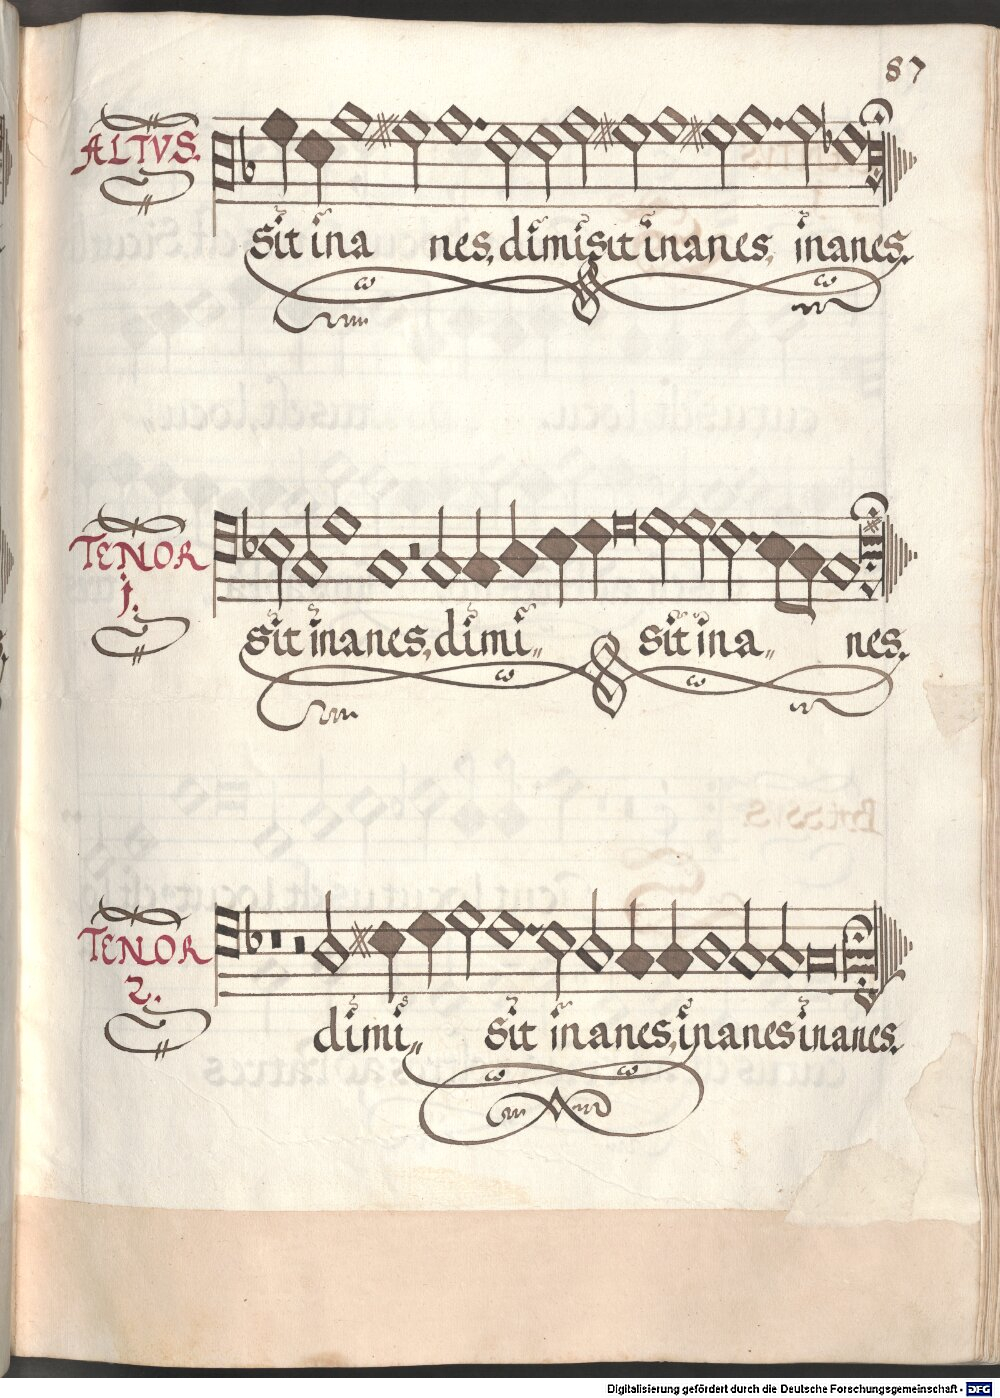 87
ALTVS.
Sit ina nes, dimisit inanes, inanes.
TENOR
j.
sit inanes, dimi,, sit ina,, nes.
TENOR
2.
dimi,, sit inanes, inanes inanes.
Digitalisierung gefördert durch die Deutsche Forschungsgemeinschaft - DFG